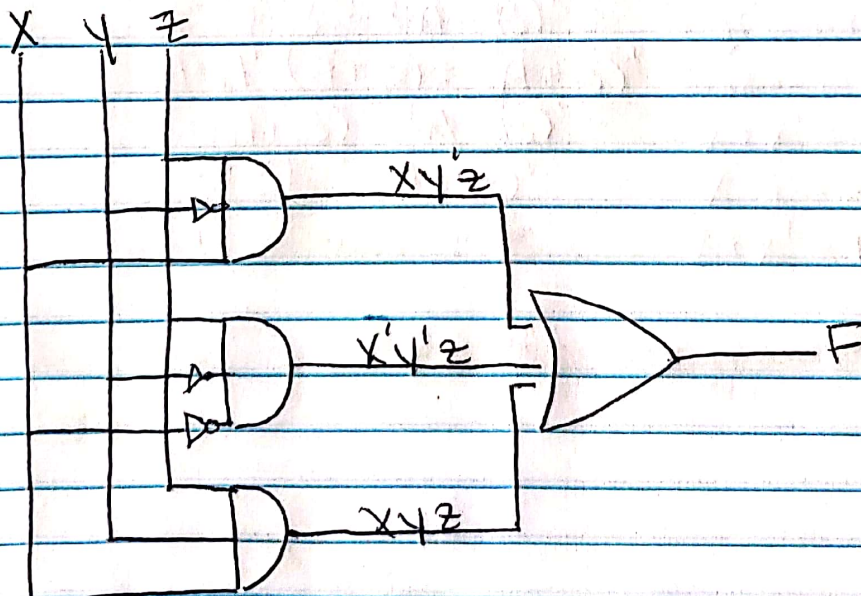 X y z
xy'z
x'y'z
F
xyz